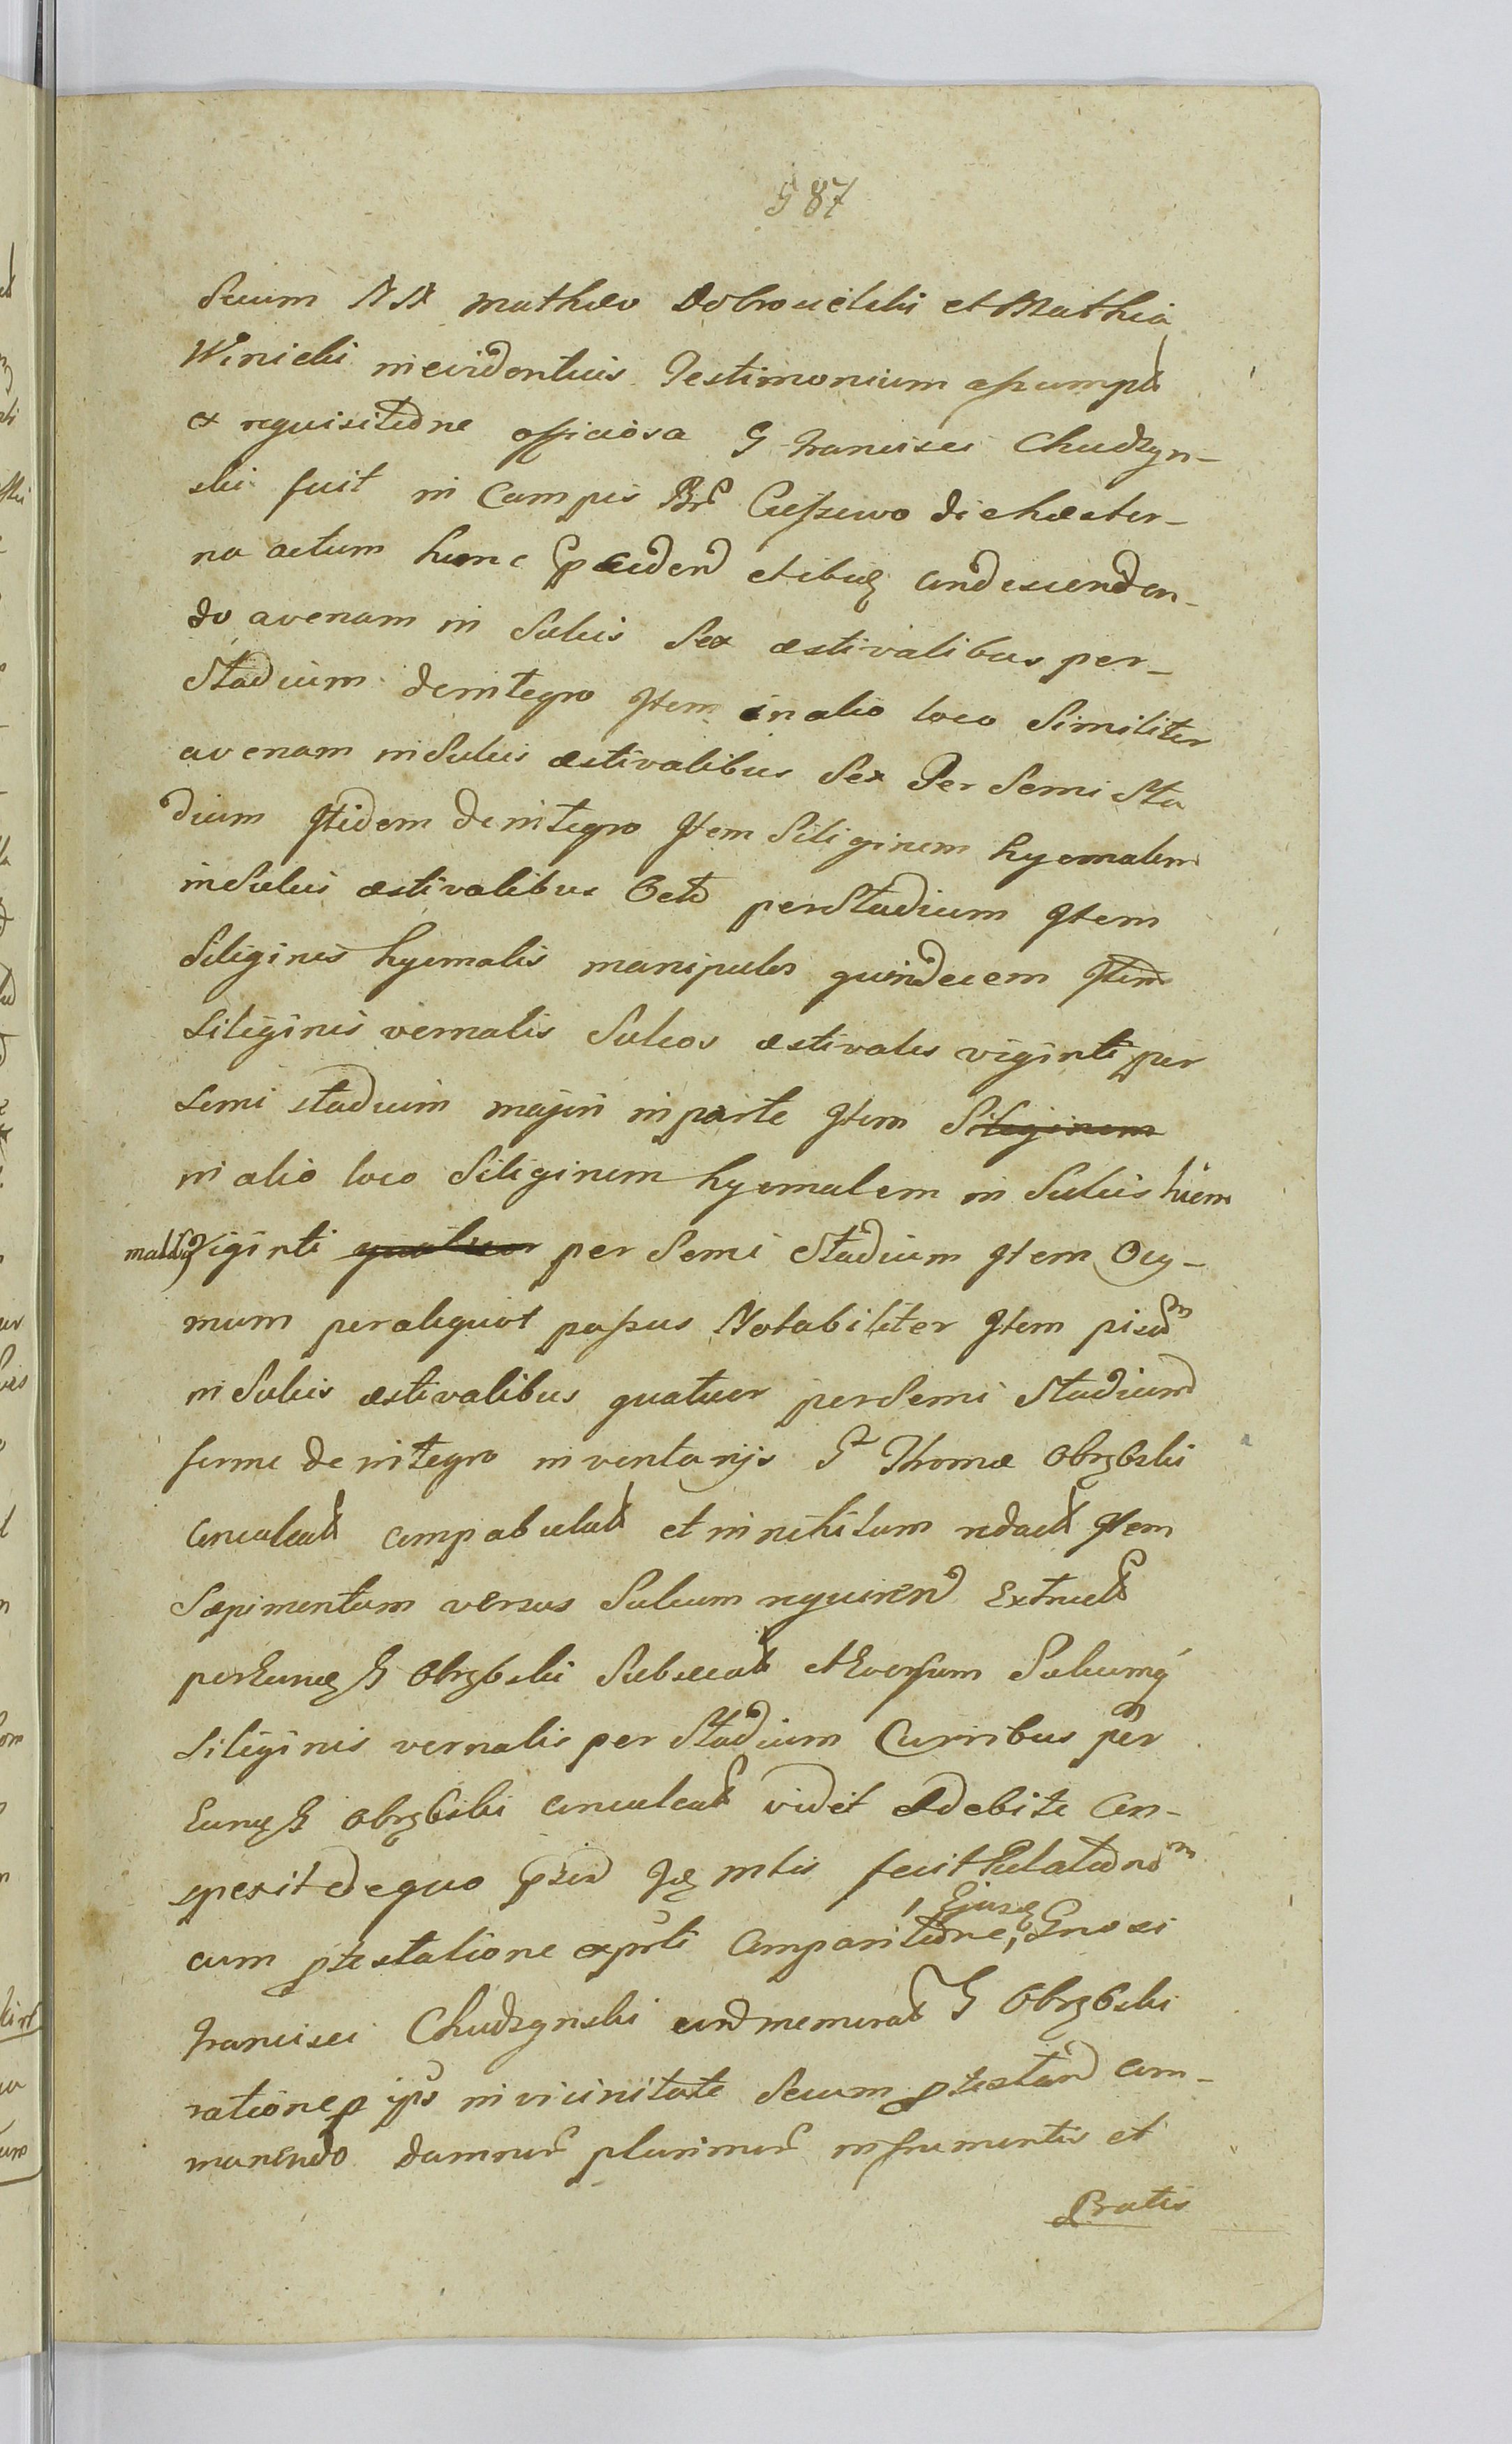 587
Secum NN Mathæo Dobrouelski et Mathia
Winicki in evidentius Testimonium assumpt
ex requisitione officiosa G Francisci Chudzyn-
ski fuit in Campis Bnr Ciessewo die hester-
na actum hunc et ibiq condescenden-
do avenam in Sulcis Sex æstivalibus per-
Stadium de integro Item in alio loco Similiter
avenam in Sulcis æstivalibus Sex Per Semi Sta
dium Itidem de integro Item Siliginem hyemalem
in Sulcis æstivalibus Octo per Stadium Item
Siliginis hyemalis manipulos quindecem Item
Siliginis vernalis Sulcos æstivales viginti per
Semi stadium majori in parte Item Siliginem
in alio loco Siliginem hyemalem in Sulcis hiem
malibq Viginti quatuor per Semi Stadium Item Ocy-
mum per aliquot passus Notabiliter Item pisum
in Sulcis æstivalibus quatuor per Semi Stadium
ferme de integro inventarijs Gr Thomæ Obrębski
conculcat compabulat et in nihilum redact Item
Sæpimentum versus Sulcum requiren Extruct
per Eundq G Obrębski Subsecat et Eversum Sulcumq
Siliginis vernalis per Stadium Curribus per
Eundq G Obrębski conculcat vidit et debite con-
spexit et de quo mtis fecit Relationem
cum ptestatione ex parti Comparitione, Ejusq Gnosi
Francisci Chudzynski cum memorat G Obrębski
ratione ps in vicinitate Secum ptestand com-
manendo damnor plurimor in frumentis et
Pratis